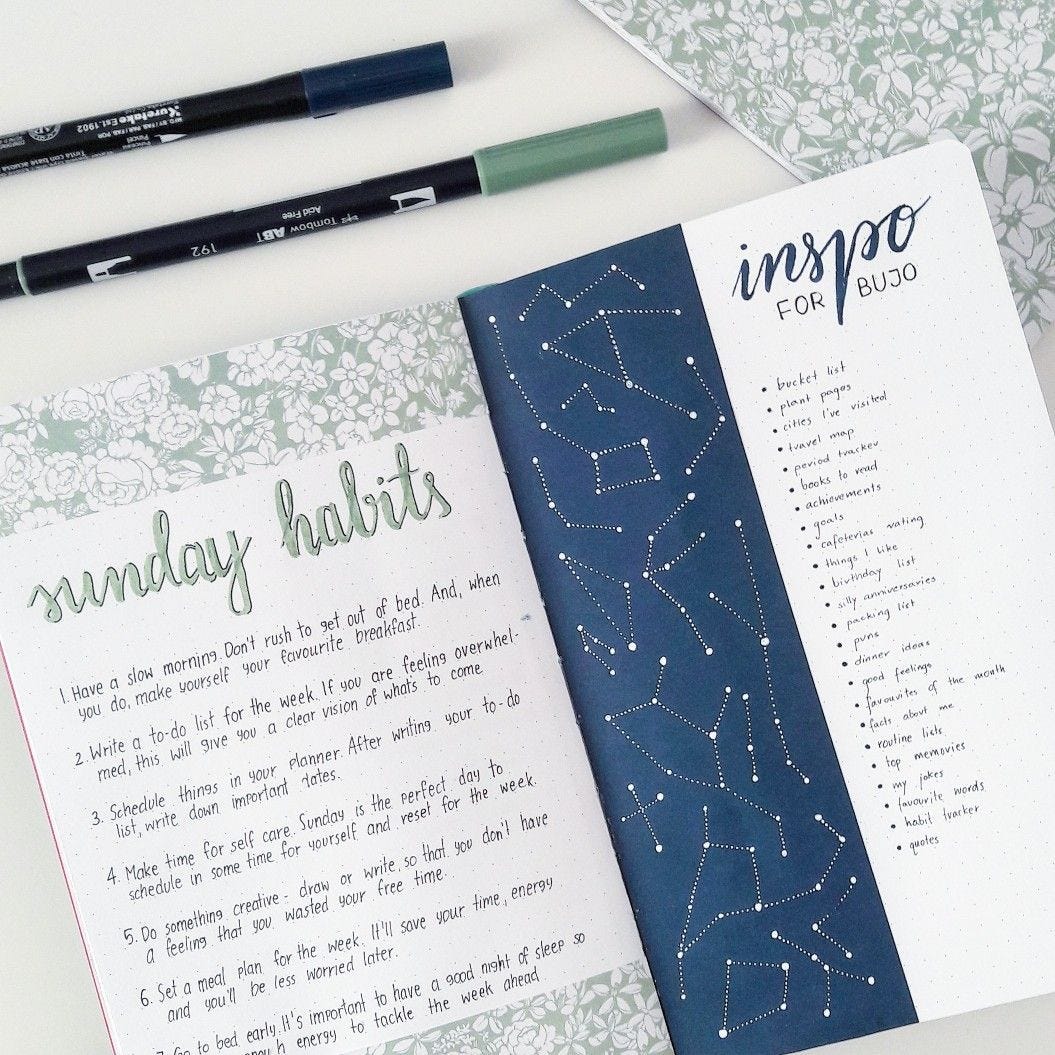 Kuretake Est.1902
MFG. BY / FAB. PAR / FAB. POR
Tinta con base acuosa
Tombow ABT
Acid Free
192
sunday habits
1. Have a slow morning. Don't rush to get out of bed. And, when
you do, make yourself your favourite breakfast.
2. Write a to-do list for the week. If you are feeling overwhel-
med, this will give you a clear vision of whats to come
3. Schedule things in your planner. After writing your to-do
list, write down important dates.
4. Make time for self care. Sunday is the perfect day to
schedule in some time for yourself and reset for the week.
5. Do something creative - draw or write, so that you don't have
a feeling that you wasted your free time.
6. Set a meal plan for the week. It'll save your time, energy
and you'll be less worried later.
7. Go to bed early. It's important to have a good night of sleep so
energy to tackle the week ahead
inspo
FOR BUJO
• bucket list
• plant pages
• cities I've visited
• travel map
• period tracker
• books to read
• achievements
• goals
• cafeterias rating
• things I like
• birthday list
• silly anniversaries
• packing list
• puns
• dinner ideas
• good feelings
• favourites of the month
• facts about me
• routine lists
• top memories
• my jokes
• favourite words
• habit tracker
• quotes